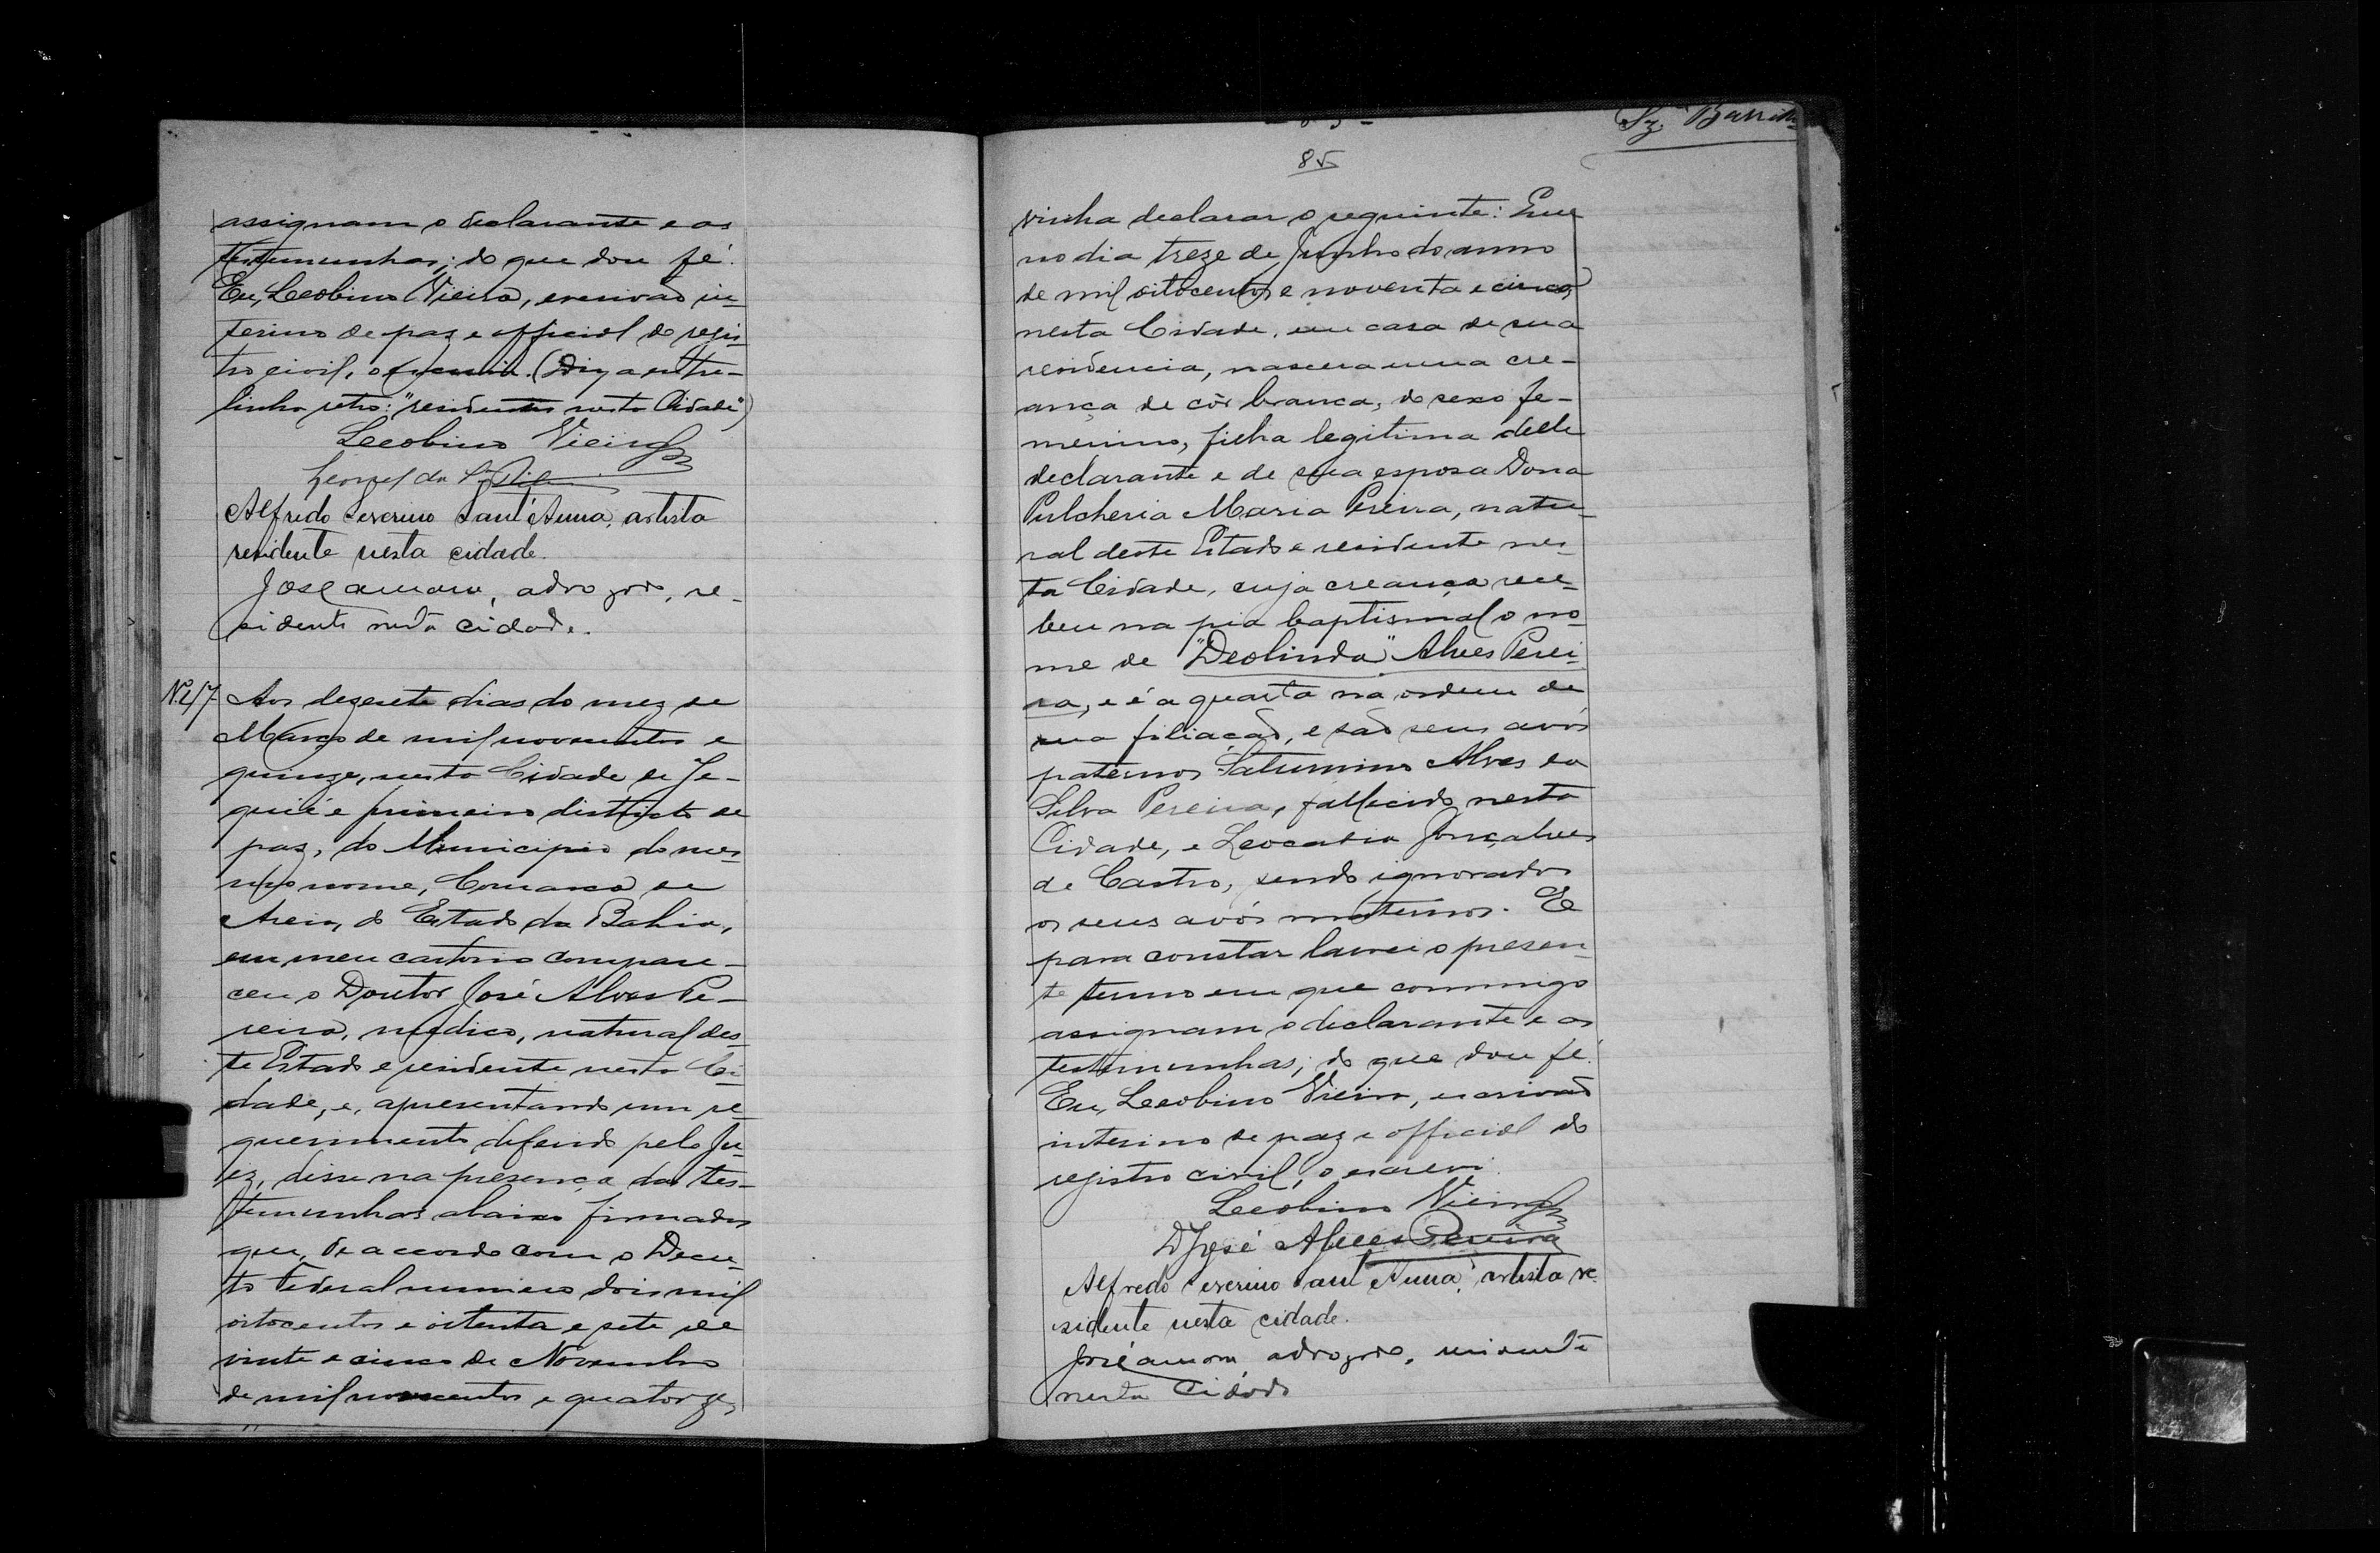 assignam o declarante e as
testemunhas; do que dou fé.
Eu, Leobino Vieira, escrivão in-
terino de paz e official do regis-
tro civil, o escrevi. (Diz a entre-
linha retro: "residentes nesta Cidade")
Leobino Vieira
Leonel da
Alfredo Severino Sant'Anna, artista
residente nesta cidade.
José Amaro, advogado, re-
sidente nesta cidade.
N. 47 Aos dezesete dias do mez de
Março de mil novecentos e
quinze, nesta Cidade de Je-
quié e primeiro districto de
paz, do Municipio do mes-
mo nome, Comarca de
Areia, do Estado da Bahia,
em meu cartorio compare-
ceu o Doutor José Alves Pe-
reira, medico, natural des-
te Estado e residente nesta Ci-
dade, e, apresentando um re-
querimento deferido pelo Ju-
iz, disse na presença das tes-
temunhas abaixo firmadas
que, de accordo com o Decre-
to Federal numero dois mil
oitocentos e oitenta e sete de
vinte e cinco de Novembro
de mil novecentos e quatorze,
85
vinha declarar o seguinte: Que
no dia treze de Junho do anno
de mil oitocentos e noventa e cinco,
nesta Cidade, em casa de sua
residencia, nascera uma cre-
ança de côr branca, do sexo fe-
menino, filha legitima delle
declarante e de sua esposa Dona
Pulcheria Maria Pereira, natu-
ral deste Estado e residente nes-
ta Cidade, cuja creança rece-
beu na pia baptismal o no-
me de "Deolinda" Alves Perei-
ra, e é a quarta na ordem de
sua filiação, e são seus avós
paternos Saturnino Alves da
Silva Pereira, fallecido nesta
Cidade, e Leocadia Gonçalves
de Castro, sendo ignorados
os seus avós maternos. E
para constar lavrei o presen-
te termo em que commigo
assignam o declarante e as
testemunhas; do que dou fé.
Eu, Leobino Vieira, escrivão
interino de paz e official do
registro civil, o escrevi.
Leobino Vieira
Dr José Alves Pereira
Alfredo Severino Sant'Anna, artista re-
sidente nesta cidade.
José Amaro, advogado, residente
nesta Cidade